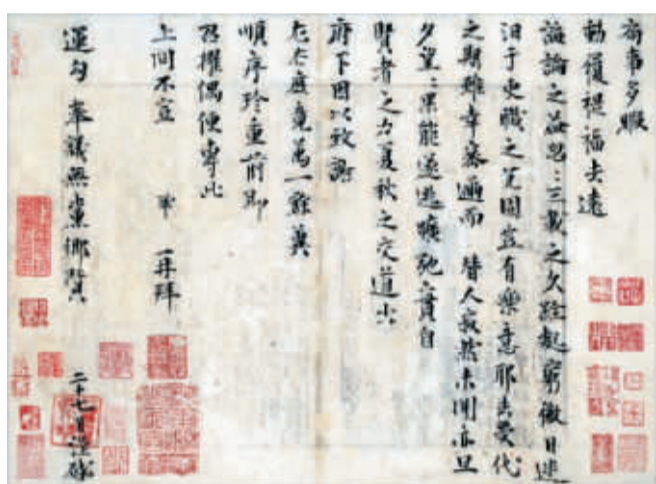 局事多暇
動履禔福去遠
誨論之益忽忽三載之久跧處窮徼日迷
汩于吏職之冗固豈有樂意耶去受代
之期雖幸密邇而 替人寂然未聞亦旦
夕望望果能遂逃曠弛之責實
賢者之力夏秋之交道出
府下因以致謝
左右庶竟萬一餘冀
順序珍重前即
召擢偶便專此
上問不宣 鞏 再拜
運勾 奉議無黨鄉賢 二十七日謹啟